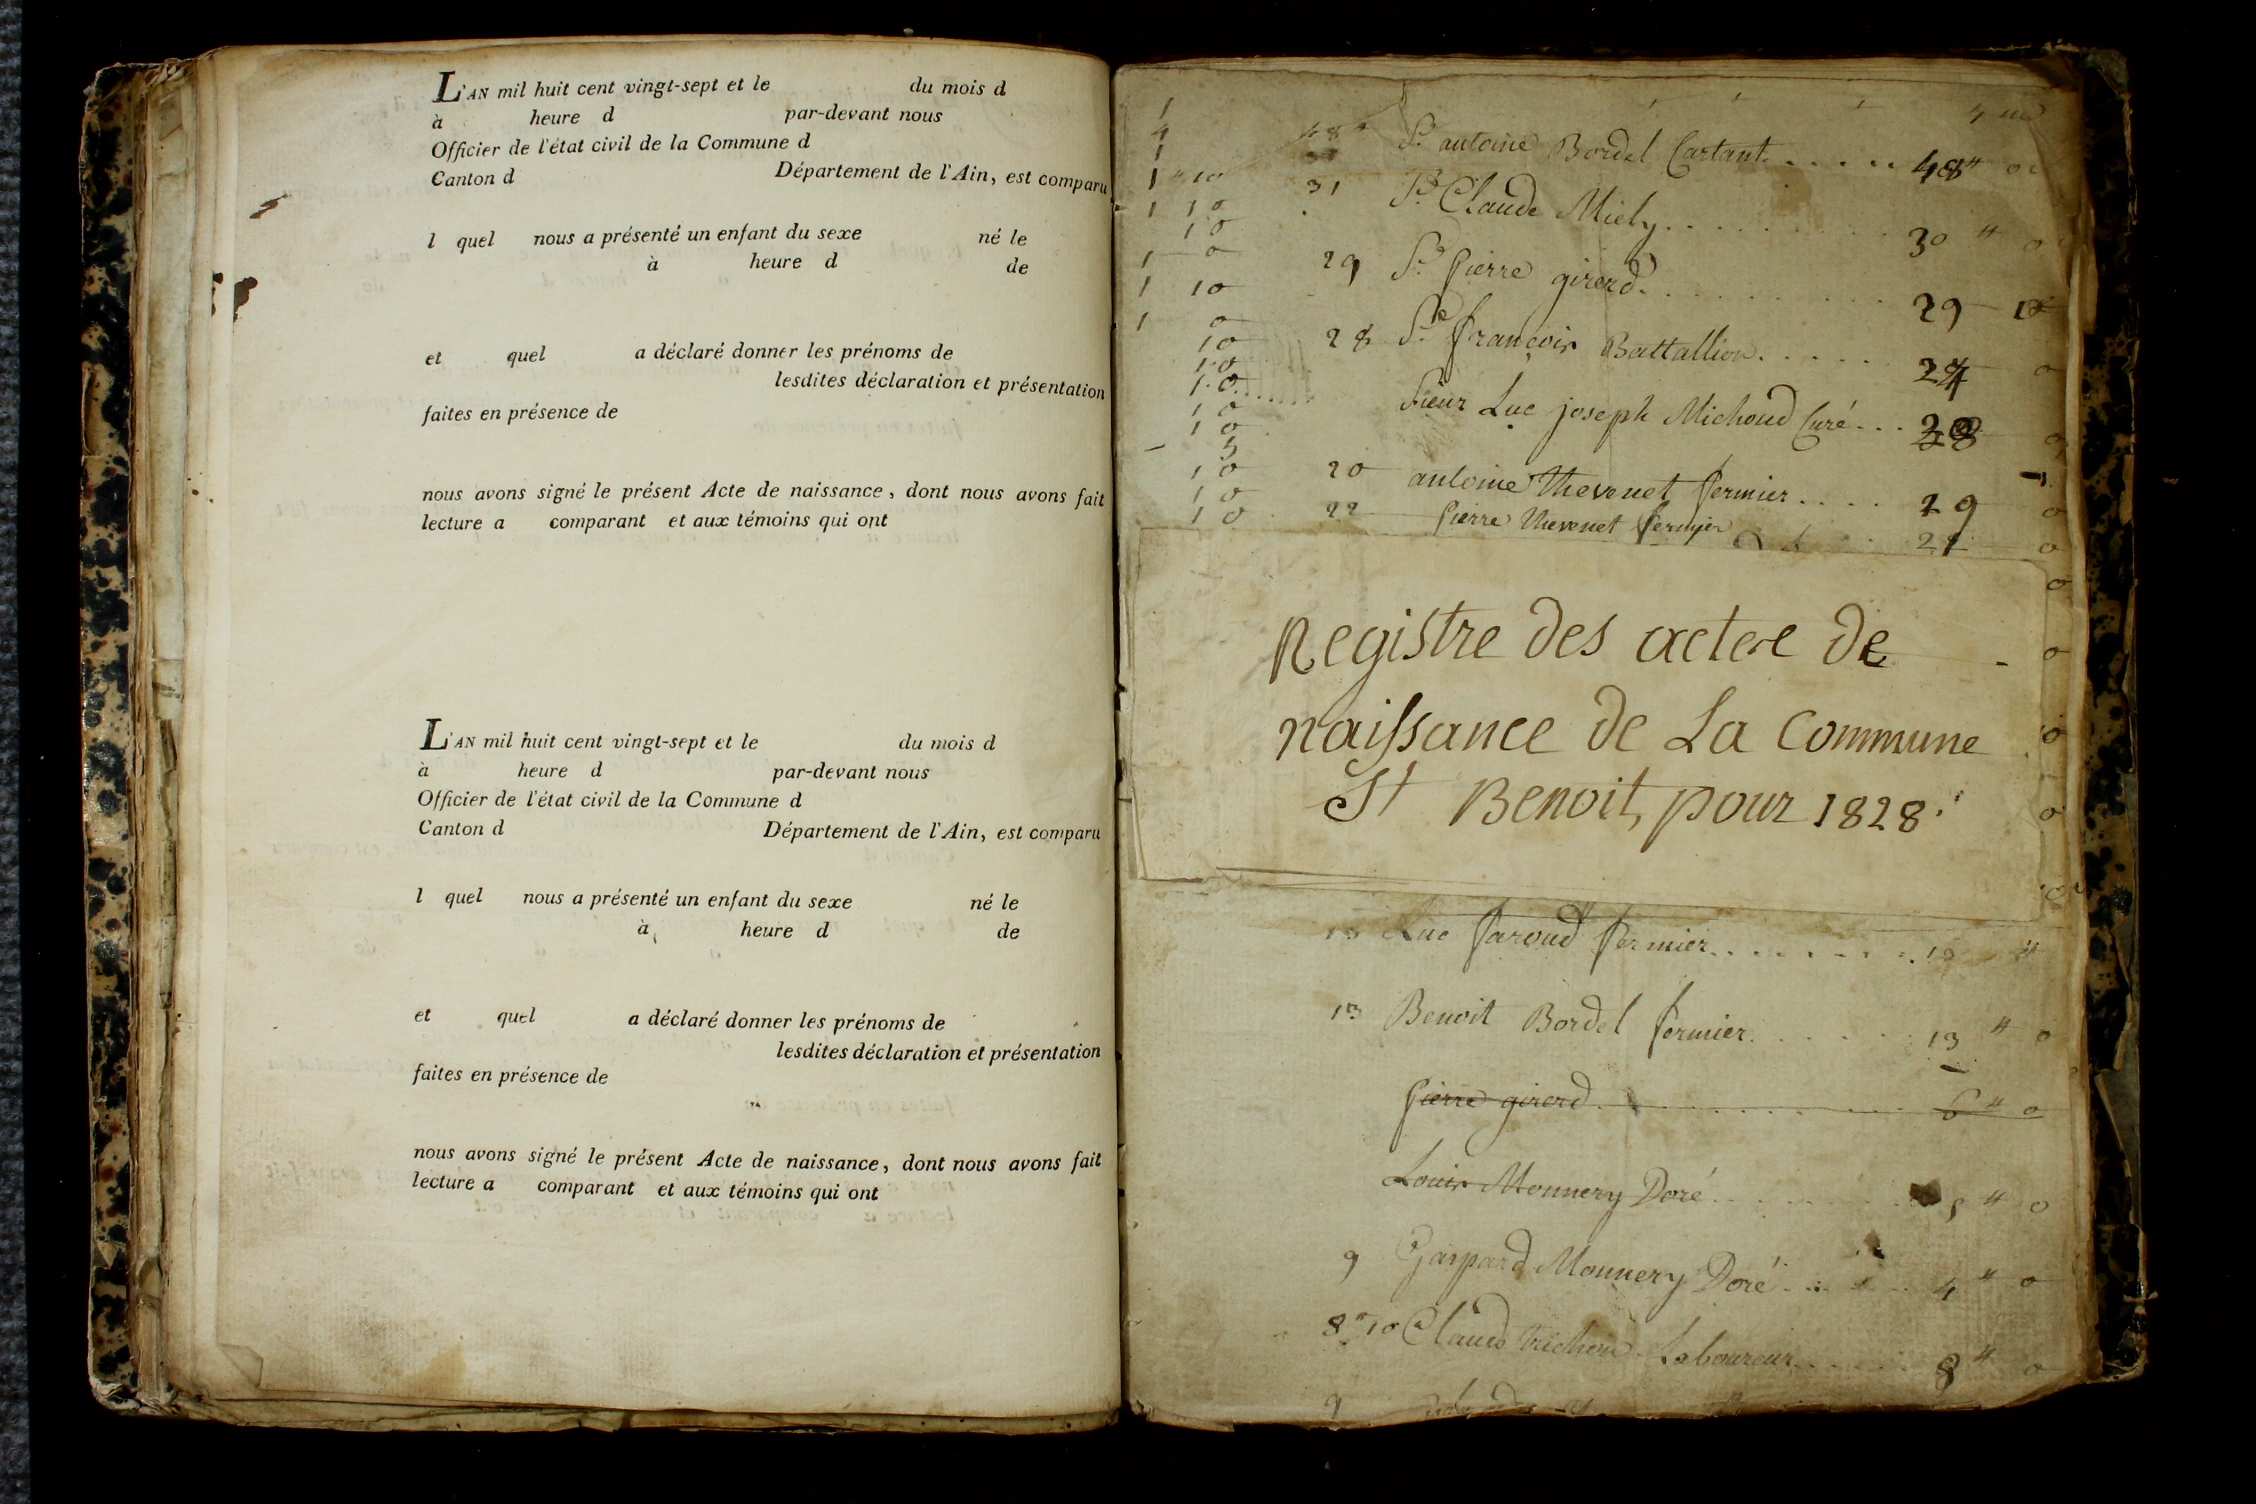 L'AN mil huit cent vingt-sept et le du mois d
à heure d par-devant nous
Officier de l'état civil de la Commune d
Canton d Département de l'Ain, est comparu
l quel nous a présenté un enfant du sexe né le
à heure d de
et quel a déclaré donner les prénoms de
lesdites déclaration et présentation
faites en présence de
nous avons signé le présent Acte de naissance, dont nous avons fait
lecture a comparant et aux témoins qui ont
L'AN mil huit cent vingt-sept et le du mois d
à heure d par-devant nous
Officier de l'état civil de la Commune d
Canton d Département de l'Ain, est comparu
l quel nous a présenté un enfant du sexe né le
à heure d de
et quel a déclaré donner les prénoms de
lesdites déclaration et présentation
faites en présence de
nous avons signé le présent Acte de naissance, dont nous avons fait
lecture a comparant et aux témoins qui ont
antoine Bordel 48 " o
31 Claude Miely 30 " o
29 Pierre girerd 29
28 françois Battallion
Sieur Luc joseph Michoud Curé
20 antoine Thevenet fermier 29 o
22 Pierre Thevenet fermier o
Registre des actere de
naissance de La Commune
St Benoit, pour 1828.
Luc faroud fermier "
13 Benoit Bordel fermier 13 " o
Pierre girerd 6 " o
Louis Monnery Doré " o
9 Gaspard Monnery Doré 4 " o
8 " 10 Claude Laboureur 8 " o
9